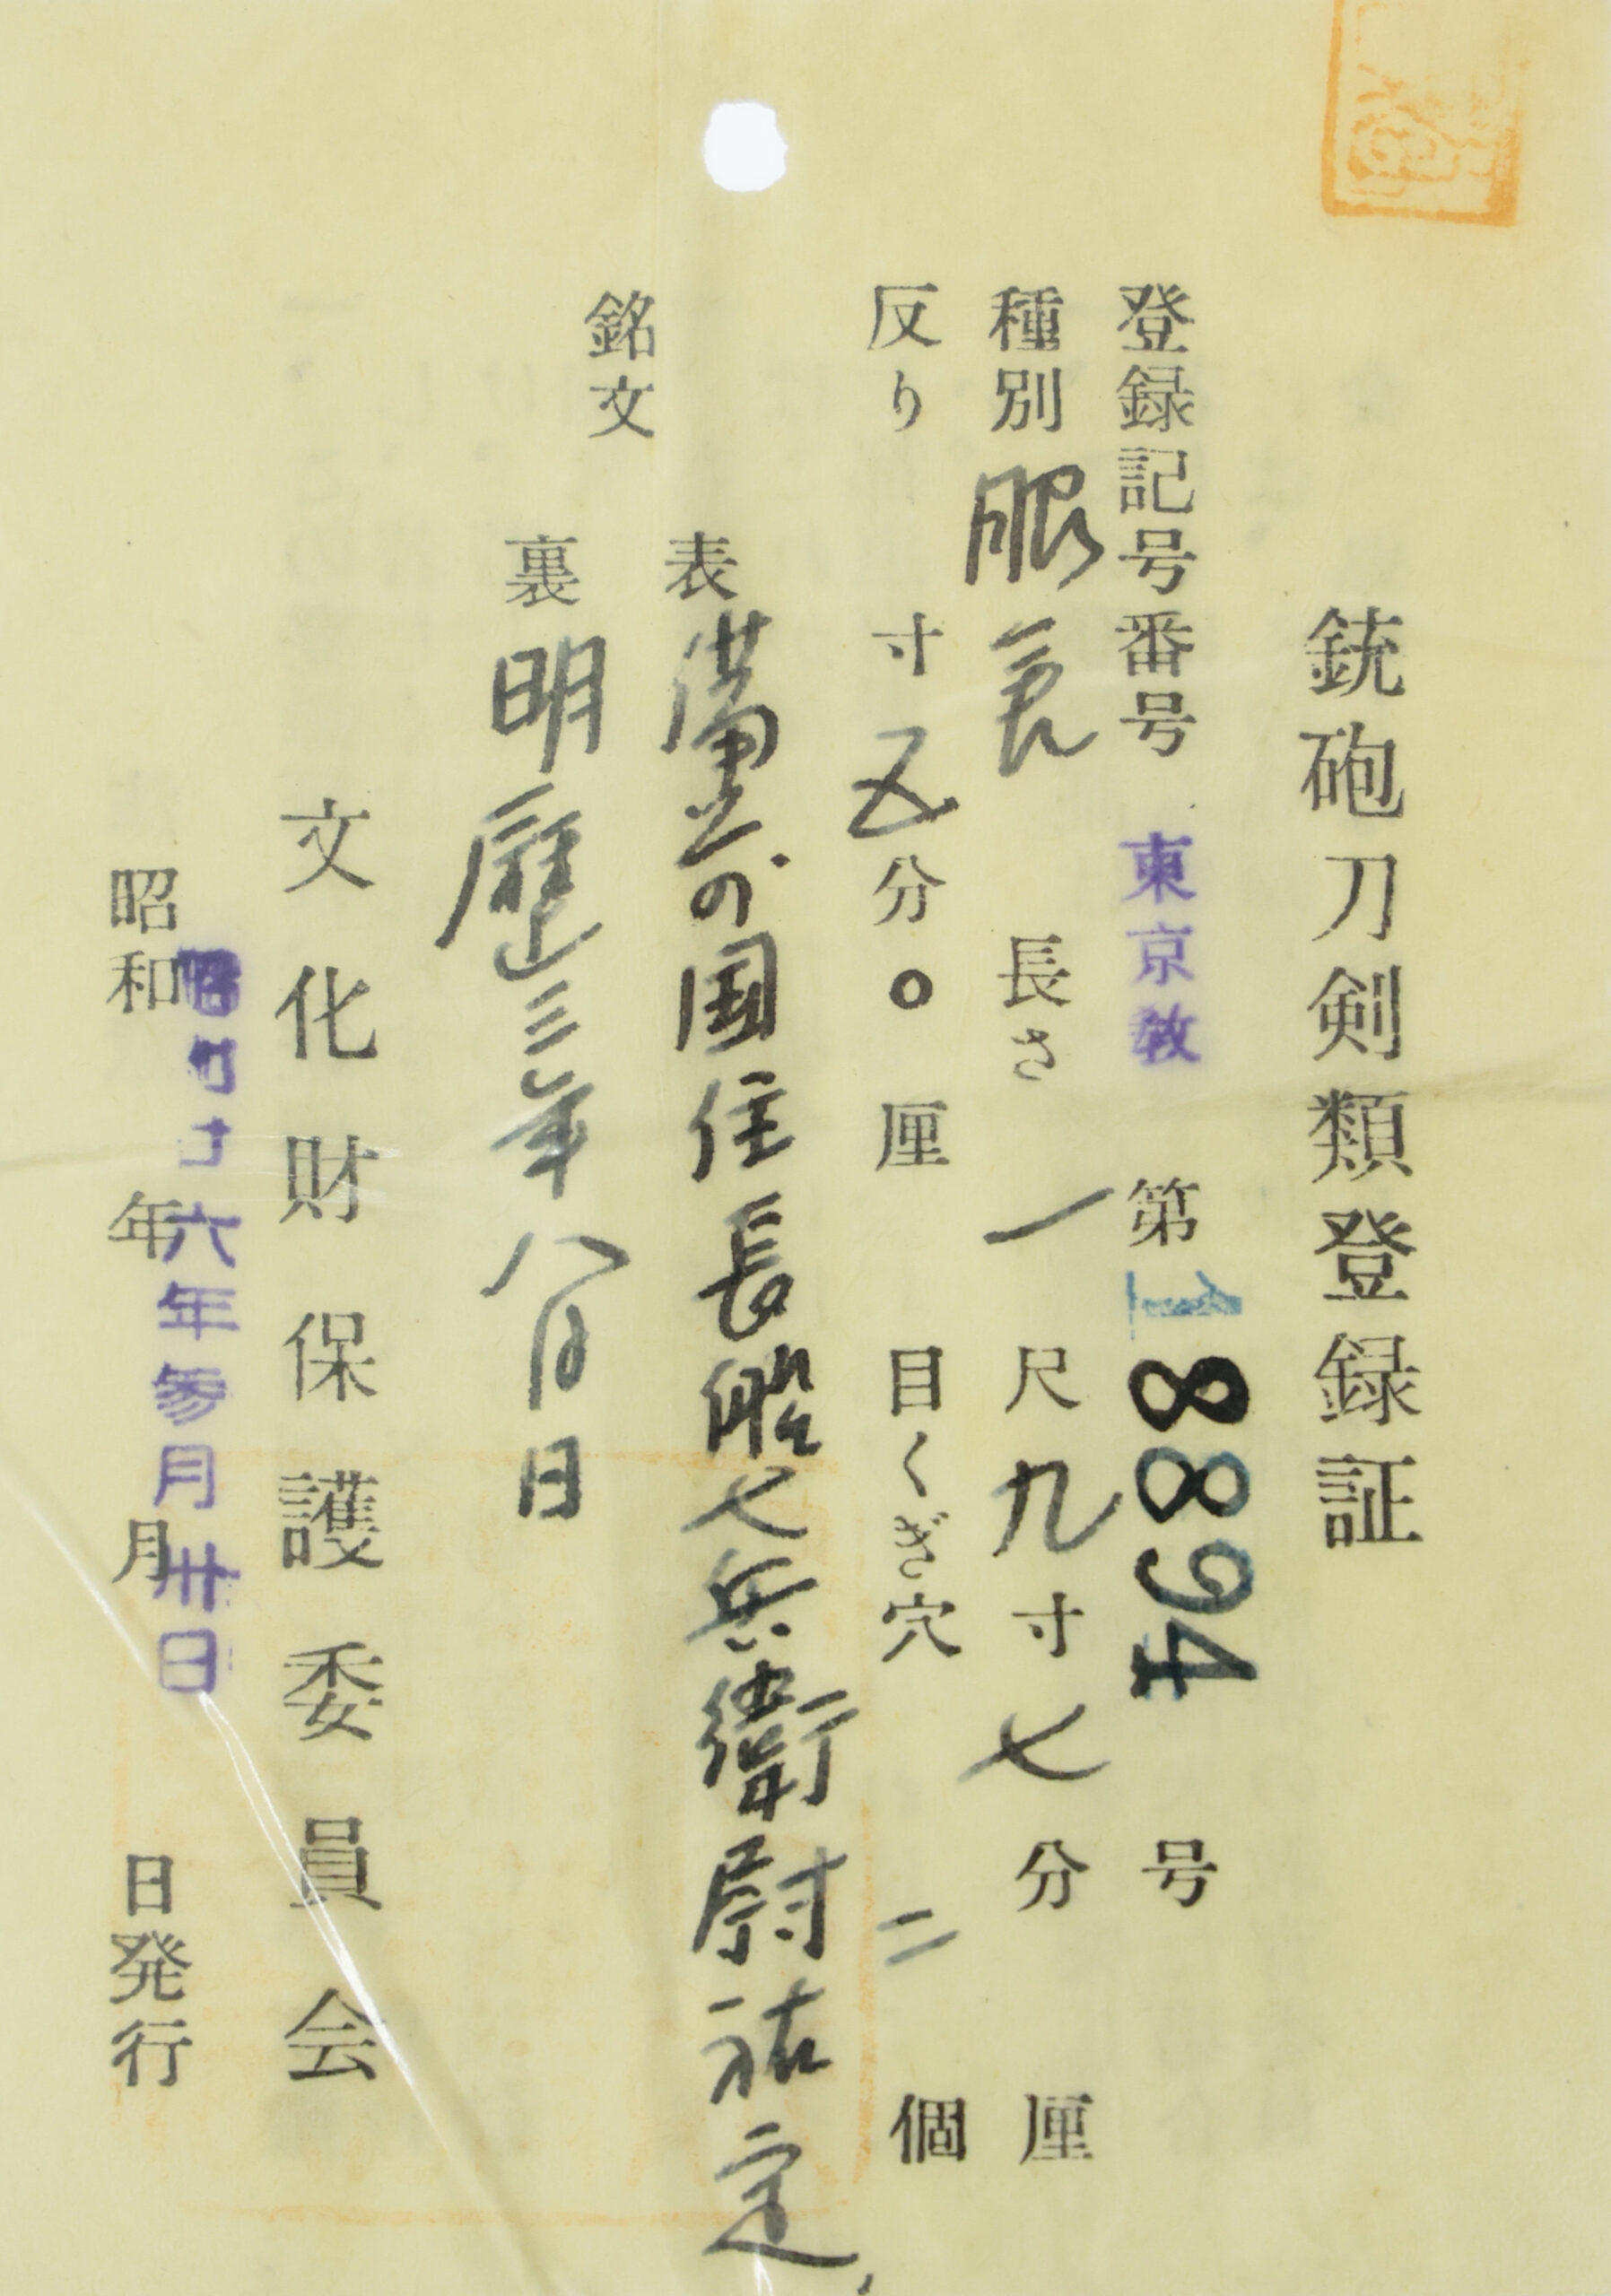 銃砲刀剣類登録証
登録記号番号 東京教 第18894号
種別 脇差 長さ 一尺九寸七分 厘
反り 寸五分〇厘 目くぎ穴 二個
銘文
表 備前の国住長船七兵衛尉祐定
裏 明暦三年八月日
文化財保護委員会
昭和廿六年参月卅日
昭和 年 月 日発行